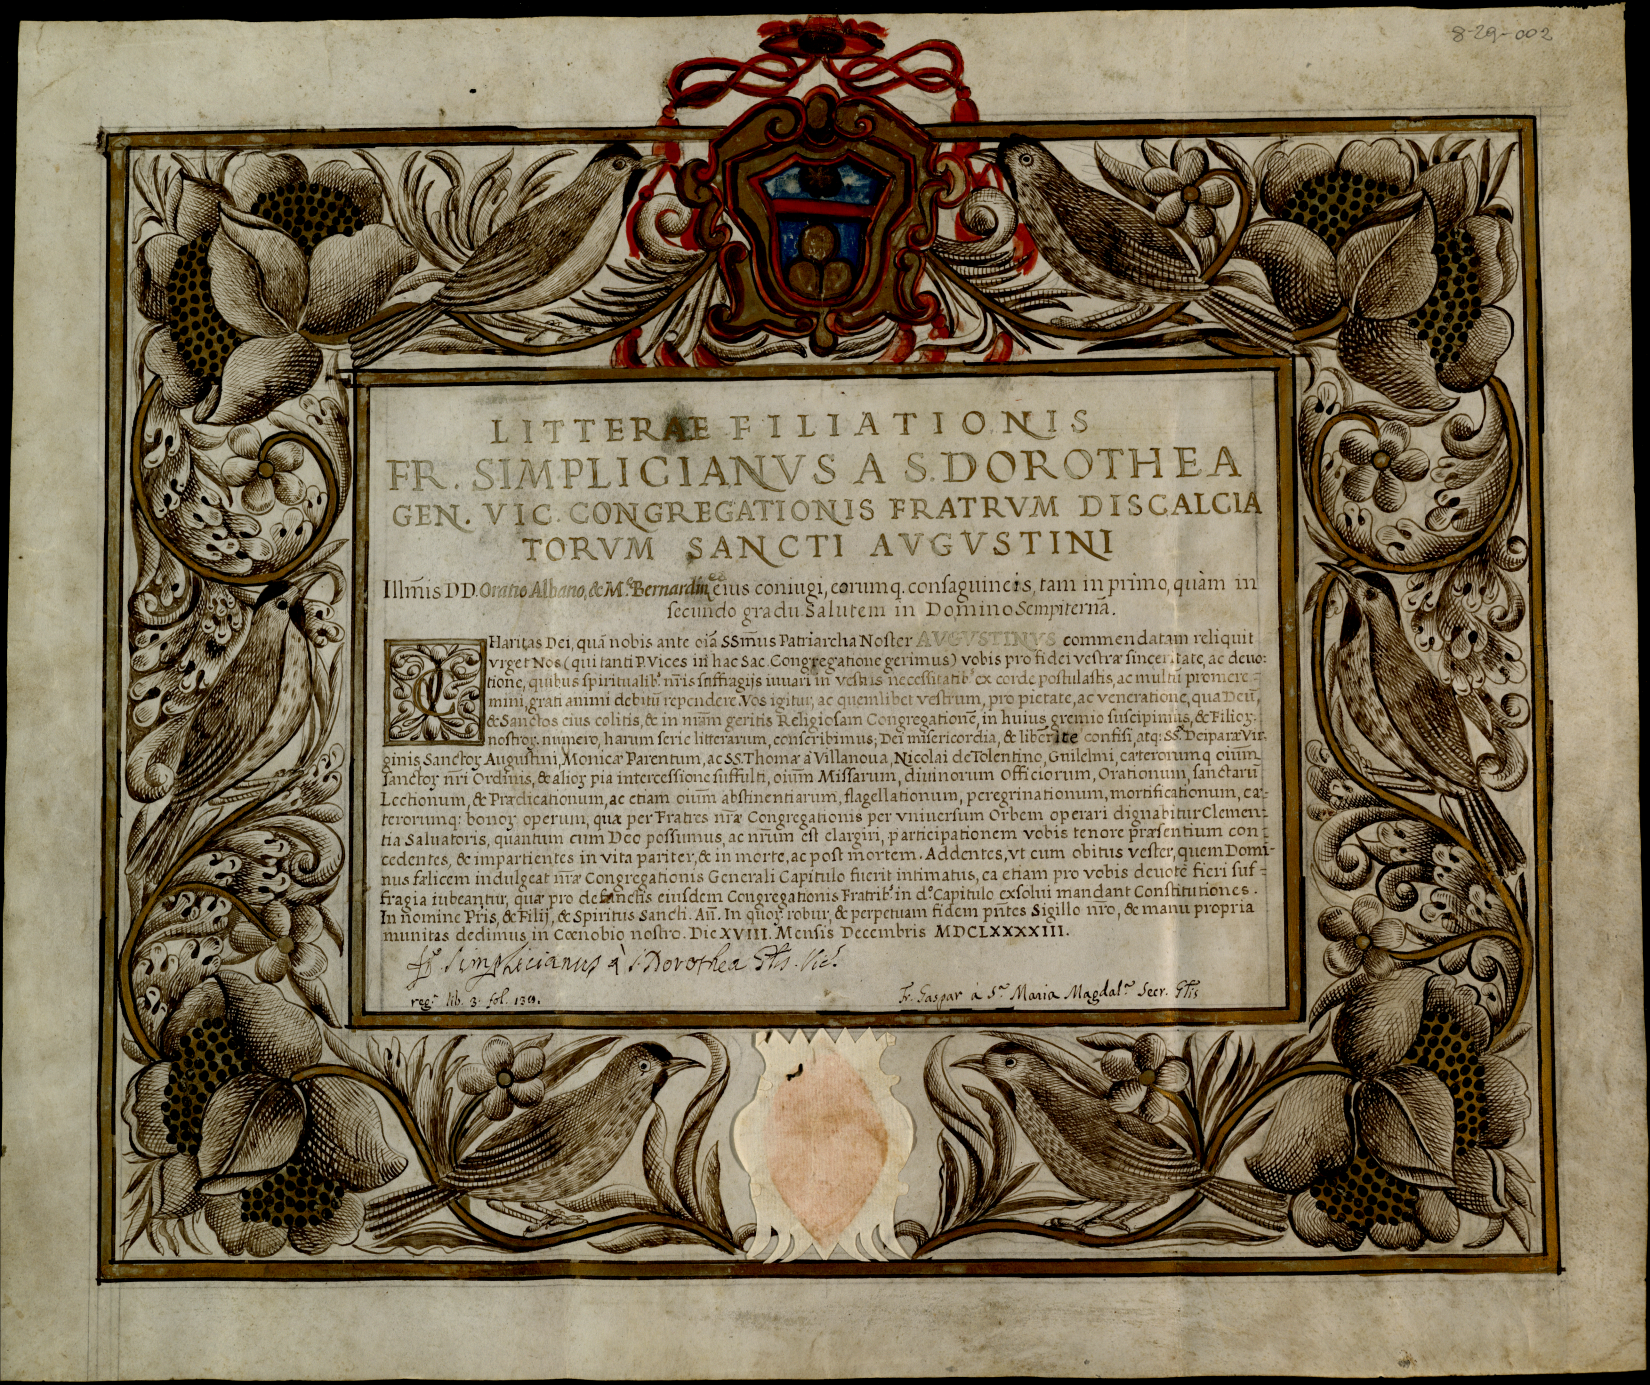 8-29-002
LITTERAE FILIATIONIS
FR. SIMPLICIANVS A S. DOROTHEA
GEN. VIC. CONGREGATIONIS FRATRVM DISCALCIA
TORVM SANCTI AVGVSTINI
Illm̃is DD. Oratio Albano, & M.ᵉ Bernardin eius coniugi, eorumq. consaguineis, tam in primo, quàm in
secundo gradu. Salutem in Domino Sempiternã.
CHaritas Dei, quã nobis ante oĩa SSm̃us Patriarcha Noster AVGVSTINVS commendatam reliquit
vrget Nos (qui tanti P. Vices in hac Sac. Congregatione gerimus) vobis pro fidei vestræ sinceritate, ac deuo:
tione, quibus spiritualibˢ nr̃is suffragijs iuuari in vestris necessitatibˢ ex corde postulastis, ac multũ promere-
mini, grati animi debitũ rependere. Vos igitur, ac quemlibet vestrum, pro pietate, ac veneratione, qua Deũ,
& Sanctos eius colitis, & in nr̃am geritis Religiosam Congregationẽ, in huius gremio suscipimus, & Filioꝝ.
nostroꝝ. numero, harum serie litterarum, conscribimus; Dei misericordia, & libẽrite confisi, atq: SS. Deiparæ Vir
ginis, Sanctoꝝ Augustini, Monicæ Parentum, ac SS. Thomæ a Villanoua, Nicolai de Tolentino, Guilelmi, cæterorumq oiũm
sanctoꝝ nr̃i Ordinis, & alioꝝ pia intercessione suffulti, oiũm Missarum, diuinorum Officiorum, Orationum, sanctarũ
Lectionum, & Prædicationum, ac etiam oiũm abstinentiarum, flagellationum, peregrinationum, mortificationum, cæ-
terorumq: bonoꝝ operum, quæ per Fratres nr̃æ Congregationis per vniuersum Orbem operari dignabitur Clemen-
tia Saluatoris, quantum cum Deo possumus, ac nr̃um est elargiri, participationem vobis tenore præsentium con-
cedentes, & impartientes in vita pariter, & in morte, ac post mortem. Addentes, vt cum obitus vester, quem Domi-
nus fælicem indulgeat nr̃æ Congregationis Generali Capitulo fuerit intimatus, ea etiam pro vobis deuotè fieri suf-
fragia iubeantur, quæ pro defunctis eiusdem Congregationis Fratribˢ in d.ᵒ Capitulo exsolui mandant Constitutiones.
In nomine Pr̃is, & Filij, & Spiritus Sancti. Am̃. In quoꝝ robur, & perpetuam fidem pñtes Sigillo nr̃o, & manu propria
munitas dedimus in Cœnobio nostro. Die XVIII. Mensis Decembris MDCLXXXXIII.
Fr. Simplicianus à S. Dorothea Gñlis. Vic.ˢ
reg.ᵗ lib. 3. fol. 139.
Fr. Gaspar à S.ᵃ Maria Magdal.ᵃ Secr. Gñlis